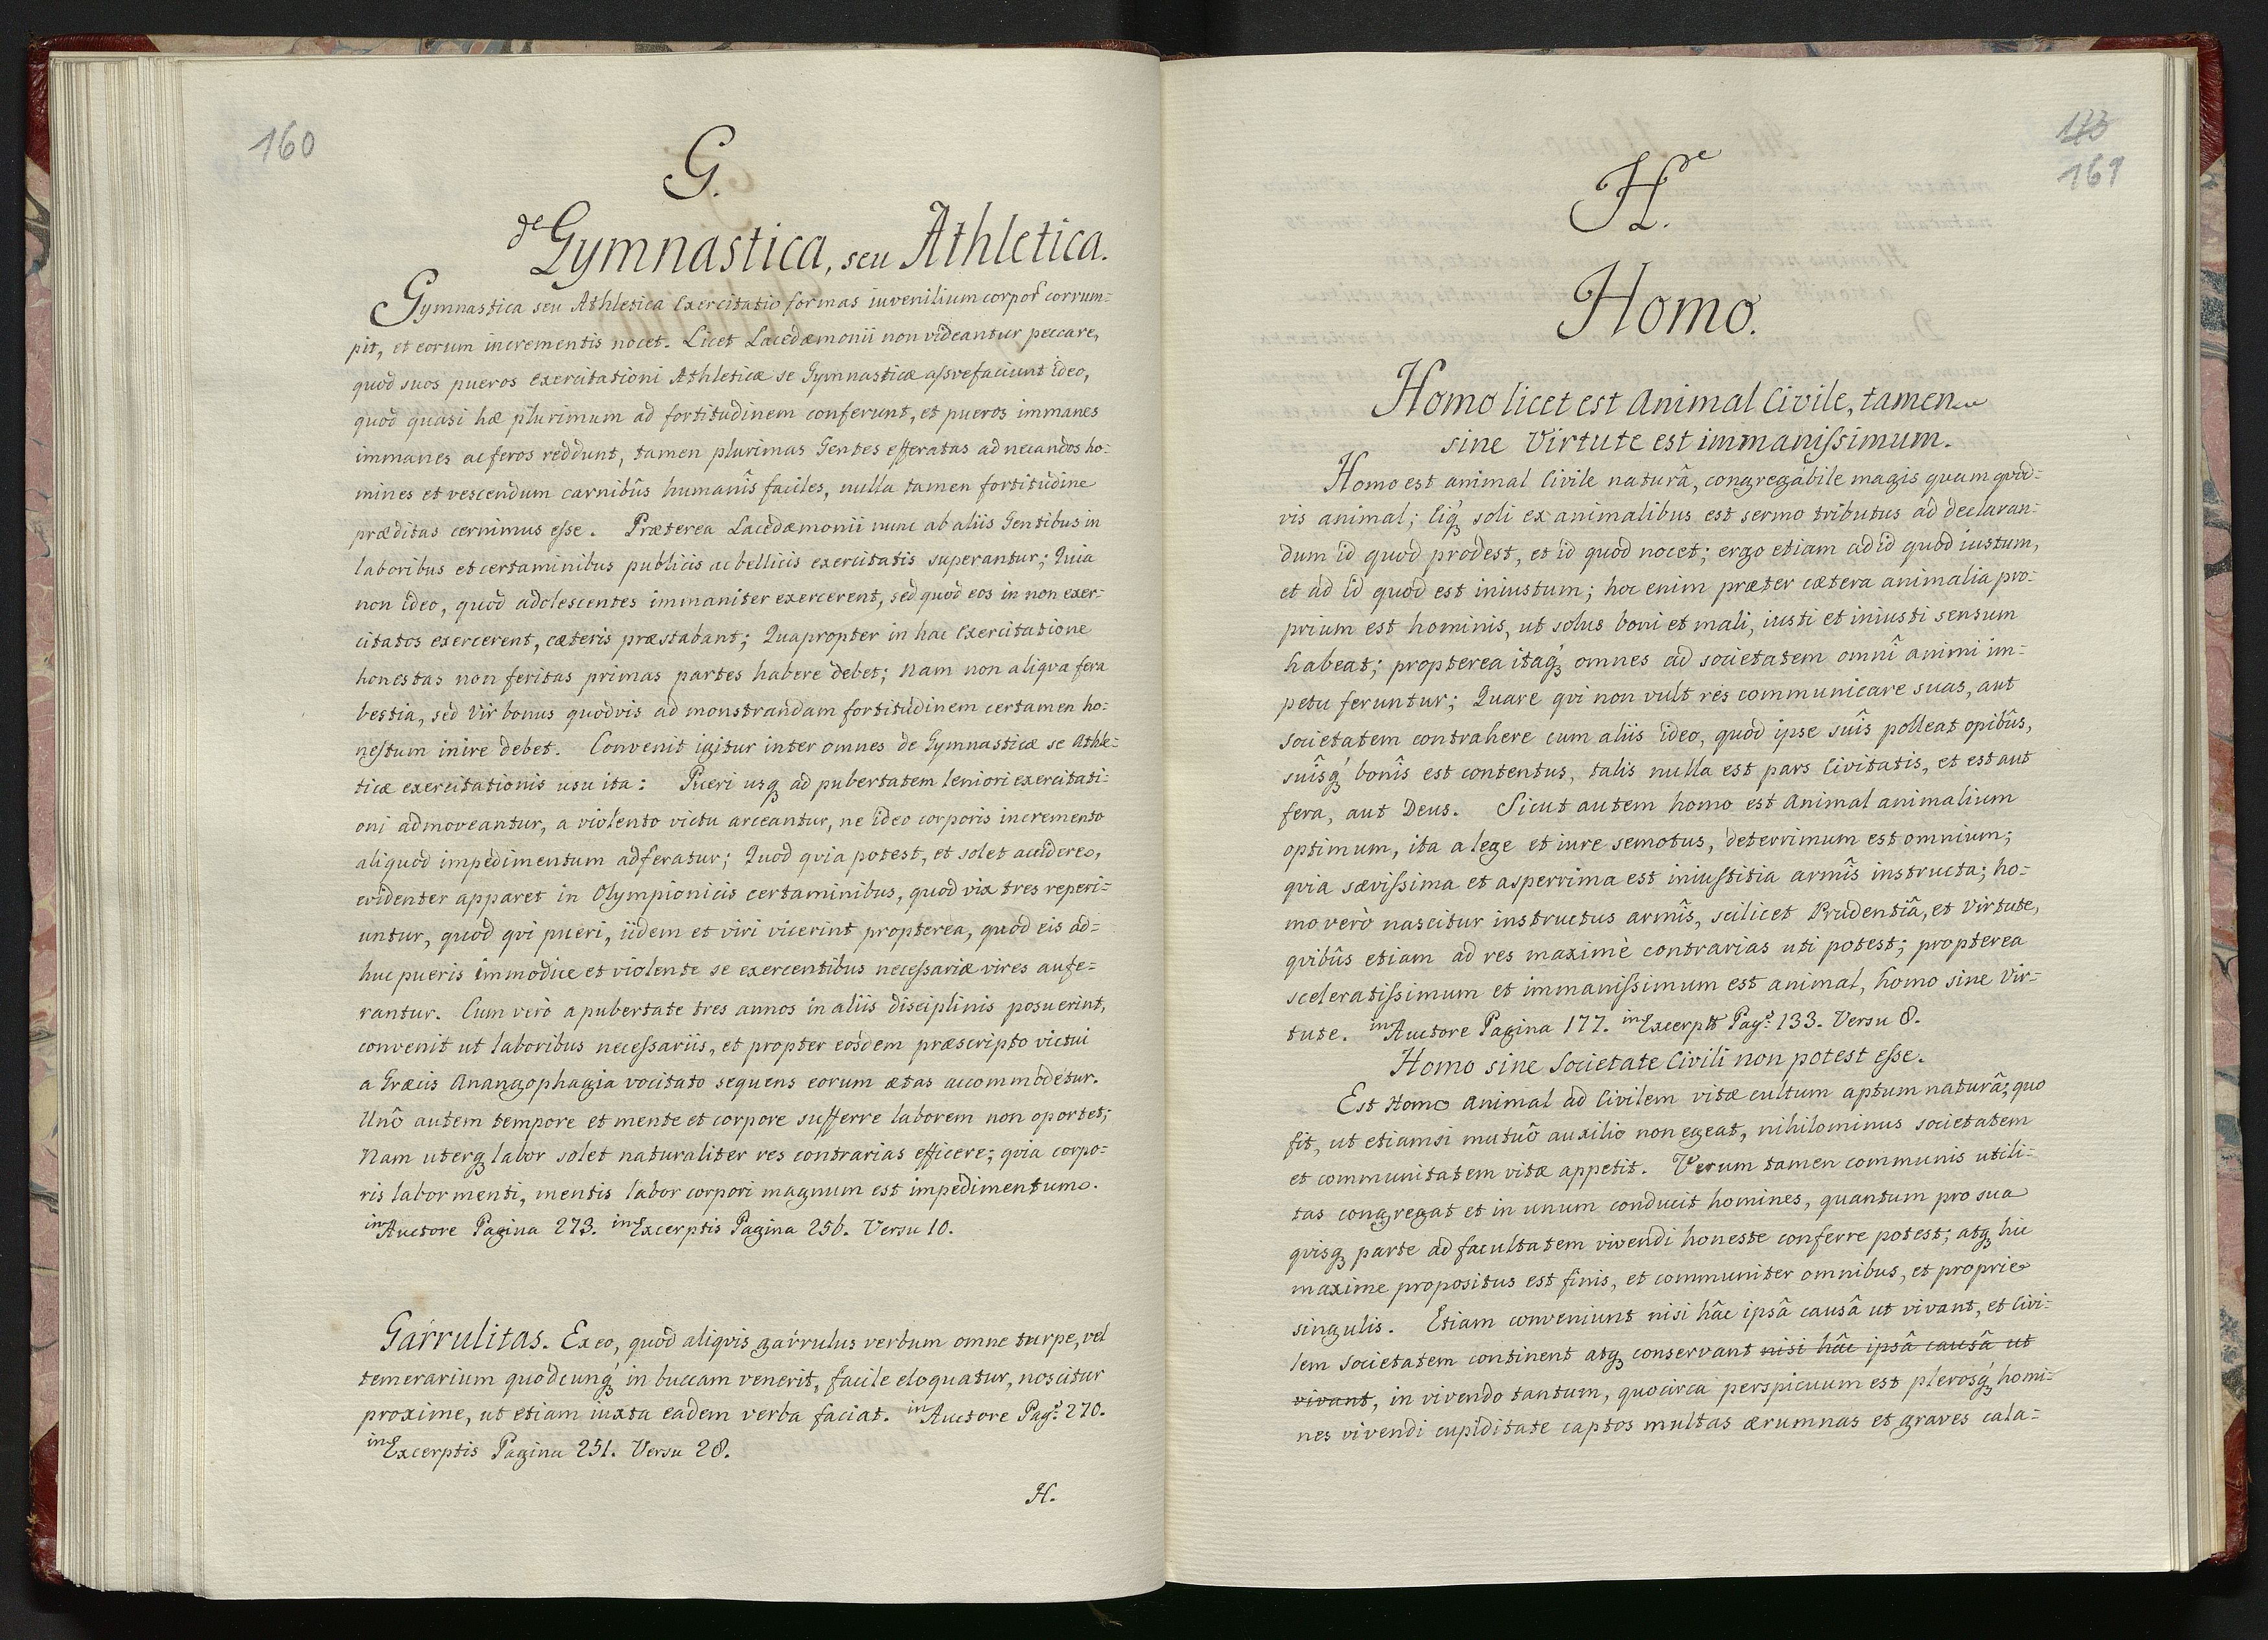 160
G.
de Gymnastica, seu Athletica.
Gymnastica seu Athletica Exercitatio formas iuvenilium corpor corrum-
pit, et eorum incrementis nocet. Licet Lacedæmonii non videantur peccare,
quod suos pueros exercitationi Athleticæ se Gymnasticæ assvefaciunt ideo,
quod quasi hæ plurimum ad fortitudinem conferunt, et pueros immanes
immanes ac feros reddunt, tamen plurimas Gentes efferatas ad necandos ho-
mines et vescendum carnibûs humanîs faciles, nulla tamen fortitudine
præditas cernimus esse. Præterea Lacedæmonii nunc ab aliis Gentibus in
laboribus et certaminibus publicis ac bellicis exercitatis superantur; Quia
non ideo, quod adolescentes immaniter exercerent, sed quod eos in non exer-
citatos exercerent, cæteris præstabant; Quapropter in hac Exercitatione
honestas non feritas primas partes habere debet; Nam non aliqva fera
bestia, sed Vir bonus quodvis ad monstrandam fortitudinem certamen ho-
nestum inire debet. Convenit igitur inter omnes de Gymnasticæ se Athle-
ticæ exercitationis usu ita: Pueri usq ad pubertatem leniori exercitati-
oni admoveantur, a violento victu arceantur, ne ideo corporis incremento
aliquod impedimentum adferatur; Quod qvia potest, et solet accidere,
evidenter apparet in Olympionicis certaminibus, quod vix tres reperi-
untur, quod qvi pueri, iidem et viri vicerint propterea, quod eis ad-
huc pueris immodice et violente se exercentibus necessariæ vires aufe-
rantur. Cum verò a pubertate tres annos in aliis disciplinis posuerint,
convenit ut laboribus necessariis, et propter eosdem præscripto victui
a Græcis Anangophagia vocitato sequens eorum ætas accommodetur.
Unô autem tempore et mente et corpore sufferre laborem non oportet;
Nam uterq labor solet naturaliter res contrarias efficere; qvia corpo-
ris labor menti, mentis labor corpori magnum est impedimentum.
in Auctore Pagina 273. in Excerptis Pagina 256. Versu 10.
Garrulitas. Ex eo, quod aliqvis garrulus verbum omne turpe, vel
temerarium quodcunq in buccam venerit, facile eloquatur, noscitur
proxime, ut etiam iuxta eadem verba faciat. in Auctore Pag: 270.
in Excerptis Pagina 251. Versu 28.
H.
173
161
de
H.
Homo.
Homo licet est Animal Civile, tamen
sine Virtute est immanissimum.
Homo est animal Civile naturâ, congregabile magis quam qvod-
vis animal; Eiq soli ex animalibus est sermo tributus ad declaran-
dum id quod prodest, et id quod nocet; ergo etiam ad id quod iustum,
et ad id quod est iniustum; hoc enim præter cætera animalia pro-
prium est hominis, ut solus boni et mali, iusti et iniusti sensum
habeat; propterea itaq omnes ad societatem omnî animi im-
petu feruntur; Quare qvi non vult res communicare suas, aut
societatem contrahere cum aliis ideo, quod ipse suîs polleat opibûs,
suîsq bonîs est contentus, talis nulla est pars Civitatis, et est aut
fera, aut Deus. Sicut autem homo est Animal animalium
optimum, ita a lege et iure semotus, deterrimum est omnium;
qvia sævissima et asperrima est iniustitia armîs instructa; ho-
mo verò nascitur instructus armîs, scilicet Prudentiâ, et Virtute,
qvibûs etiam ad res maximè contrarias uti potest; propterea
sceleratissimum et immanissimum est animal, homo sine Vir-
tute. in Auctore Pagina 177. in Excerpt Pag: 133. Versu 8.
Homo sine Societate Civili non potest esse.
Est Homo Animal ad Civilem vitæ cultum aptum naturâ; quo
fit, ut etiamsi mutuô auxilio non egeat, nihilominus societatem
et communitatem vitæ appetit. Verum tamen communis utili-
tas congregat et in unum conducit homines, quantum pro sua
qvisq parte ad facultatem vivendi honeste conferre potest; atq hic
maxime propositus est finis, et communiter omnibus, et proprie
singulis. Etiam conveniunt nisi hâc ipsâ causâ ut vivant, et Civi-
lem societatem continent atq conservant nisi hâc ipsâ causâ ut
vivant, in vivendo tantum, quocirca perspicuum est plerosq homi-
nes vivendi cupiditate captos multas ærumnas et graves cala-